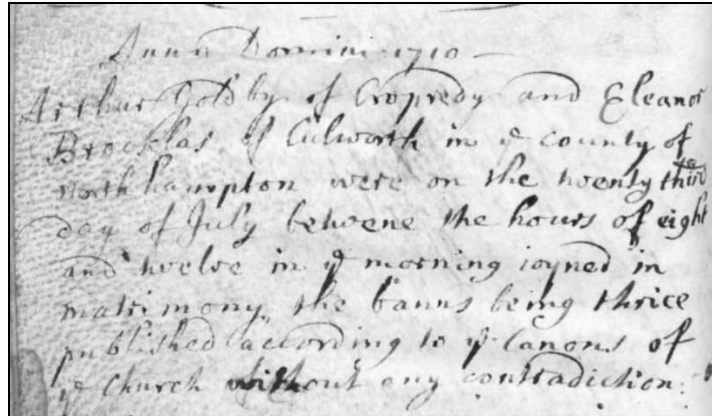 Anno Domini 1710
Arthur Goldby of Cropredy and Eleanor
Brockles of Culworth in ye county of
North hampton were on the twenty third
day of July betwene the hours of eight
and twelve in ye morning ioyned in
matrimony the banns being thrice
published according to ye Canons of
ye Church without any contradiction.